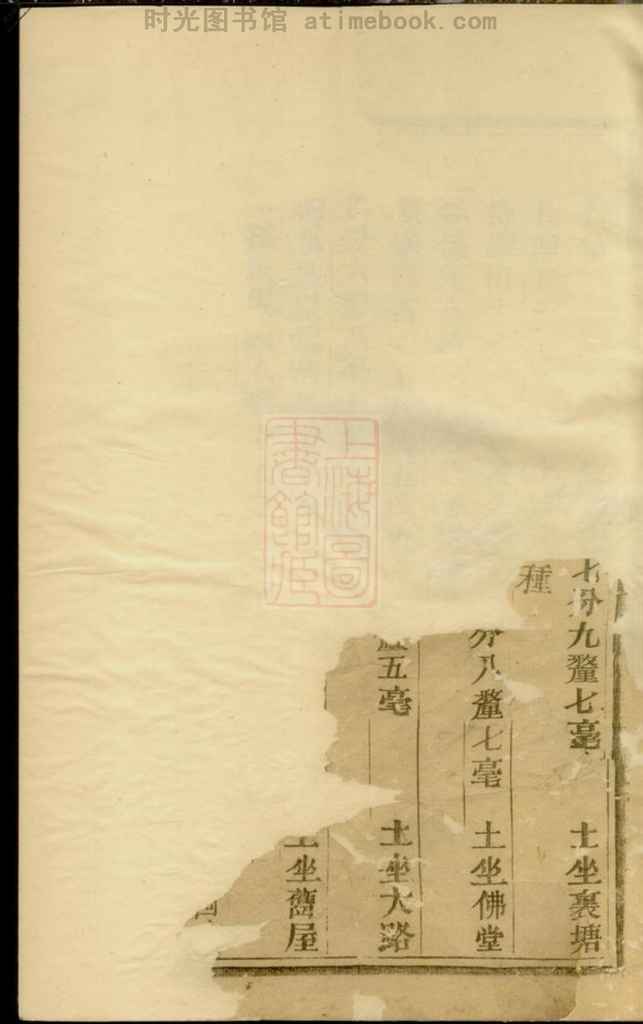 时光图书馆 atimebook.com
上海圖
書館藏
分九釐七毫 土坐裏塘
種
分八釐七毫 土坐佛堂
五毫 土坐大路
土坐舊屋